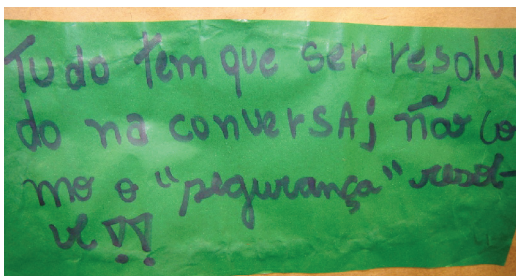 Tudo tem que ser resolvi
do na conversA; não co
mo o "segurança" resol-
ve!!